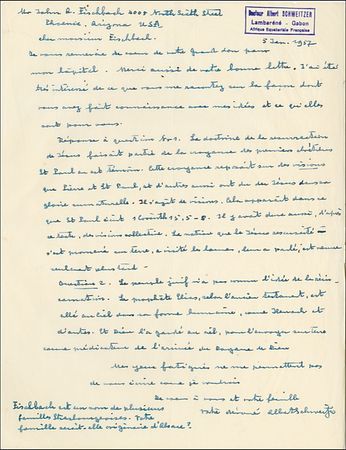 Mr John R. Eischbach 2008 North Sixth Street
Phoenix, Arizona USA
Docteur Albert SCHWEITZER
Lambaréné - Gabon
Afrique Equatoriale Française
cher monsieur Eischbach.
5 Jan. 1957
Je vous remercie de coeur de votre grand don pour
mon hôpital. Merci aussi de votre bonne lettre. J'ai été
très intéressé de ce que vous me racontez sur la façon dont
vous avez fait connaissance avec mes idées et ce qu'elles
sont pour vous.
Réponse à question No 1. La doctrine de la résurrection
de Jésus faisait partie de la croyance des premiers chrétiens
St Paul en est témoin. Cette croyance reposait sur des visions
que Pierre et St Paul, et d'autres aussi ont eu de Jésus dans sa
gloire surnaturelle. Il s'agit de visions. Cela apparaît dans ce
que St Paul écrit 1 Corinth 15, 5-8. Il y avait donc aussi, d'après
ce texte, des visions collectives. La notion que Jésus ressuscité
s'est promené sur terre, a visité les hommes, leur a parlé, est venue
seulement plus tard -
Question 2. Le peuple juif n'a pas connu l'idée de la réin-
carnation. Le prophète Elias, selon l'ancien testament, est
allé au ciel dans sa forme humaine, comme Henoch et
d'autres. Et Dieu l'a gardé au ciel, pour l'envoyer sur terre
comme prédicateur de l'arrivée du Royaume de Dieu
Mes yeux fatigués ne me permettent pas
de vous écrire comme je voudrais
De coeur à vous et votre famille
votre dévoué Albert Schweitzer
Eischbach est un nom de plusieurs
familles Strasbourgeoises. Votre
famille serait-elle originaire d'Alsace?